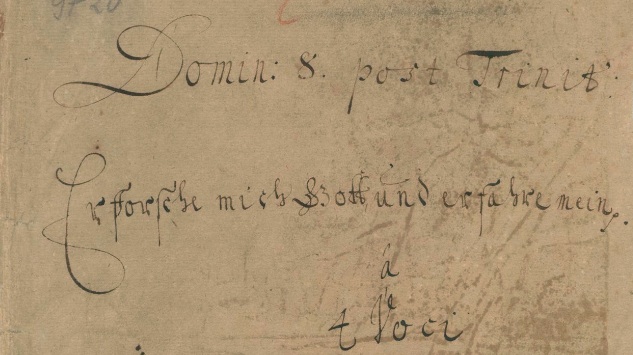 Domin: 8. post Trinit:
Erforsche mich Gott und erfahre mein.
à
4 Voci